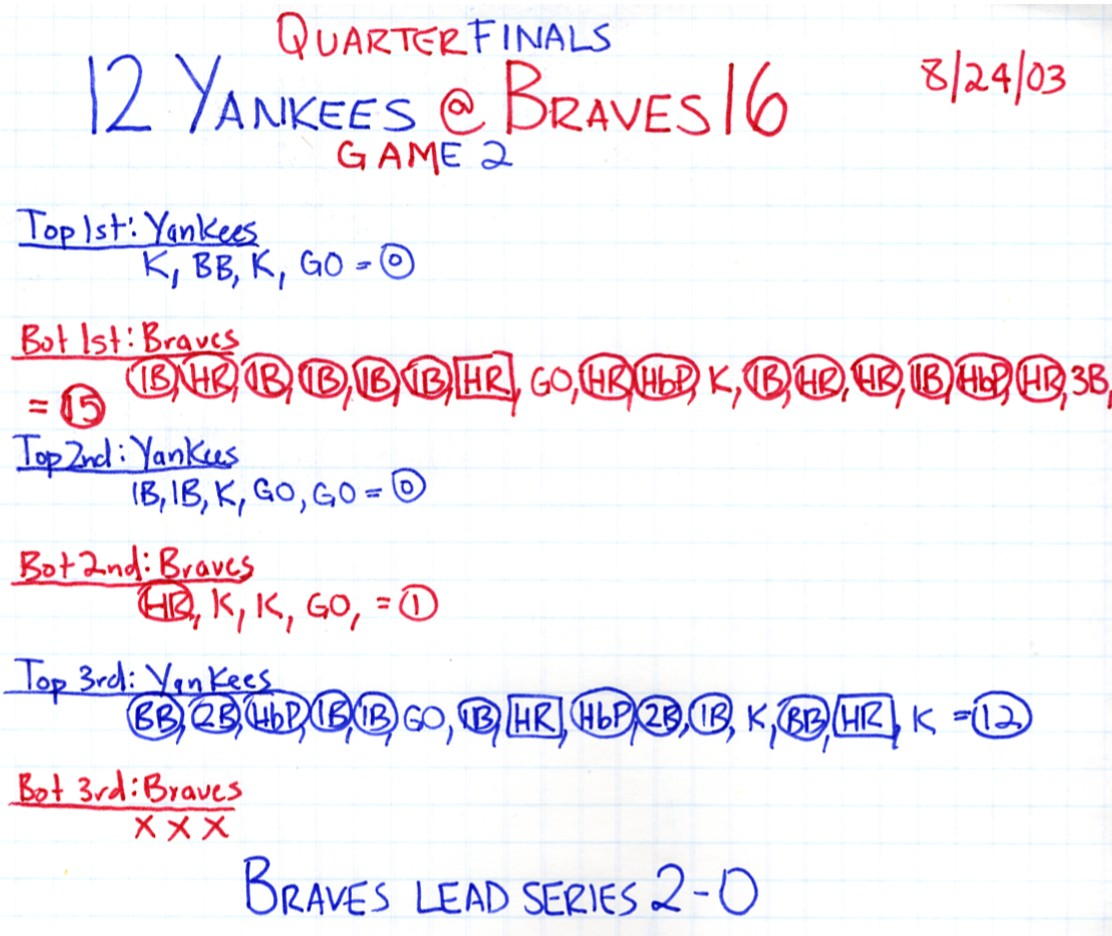 QUARTERFINALS
12 YANKEES @ BRAVES 16 8/24/03
GAME 2
Top 1st: Yankees
K, BB, K, GO = 0
Bot 1st: Braves
1B, HR, 1B, 1B, 1B, 1B, HR, GO, HR, HbP, K, 1B, HR, HR, 1B, HbP, HR, 3B,
= 15
Top 2nd: Yankees
1B, 1B, K, GO, GO = 0
Bot 2nd: Braves
HR, K, K, GO, = 1
Top 3rd: Yankees
BB, 2B, HbP, 1B, 1B, GO, 1B, HR, HbP, 2B, 1B, K, BB, HR, K = 12
Bot 3rd: Braves
X X X
BRAVES LEAD SERIES 2-0